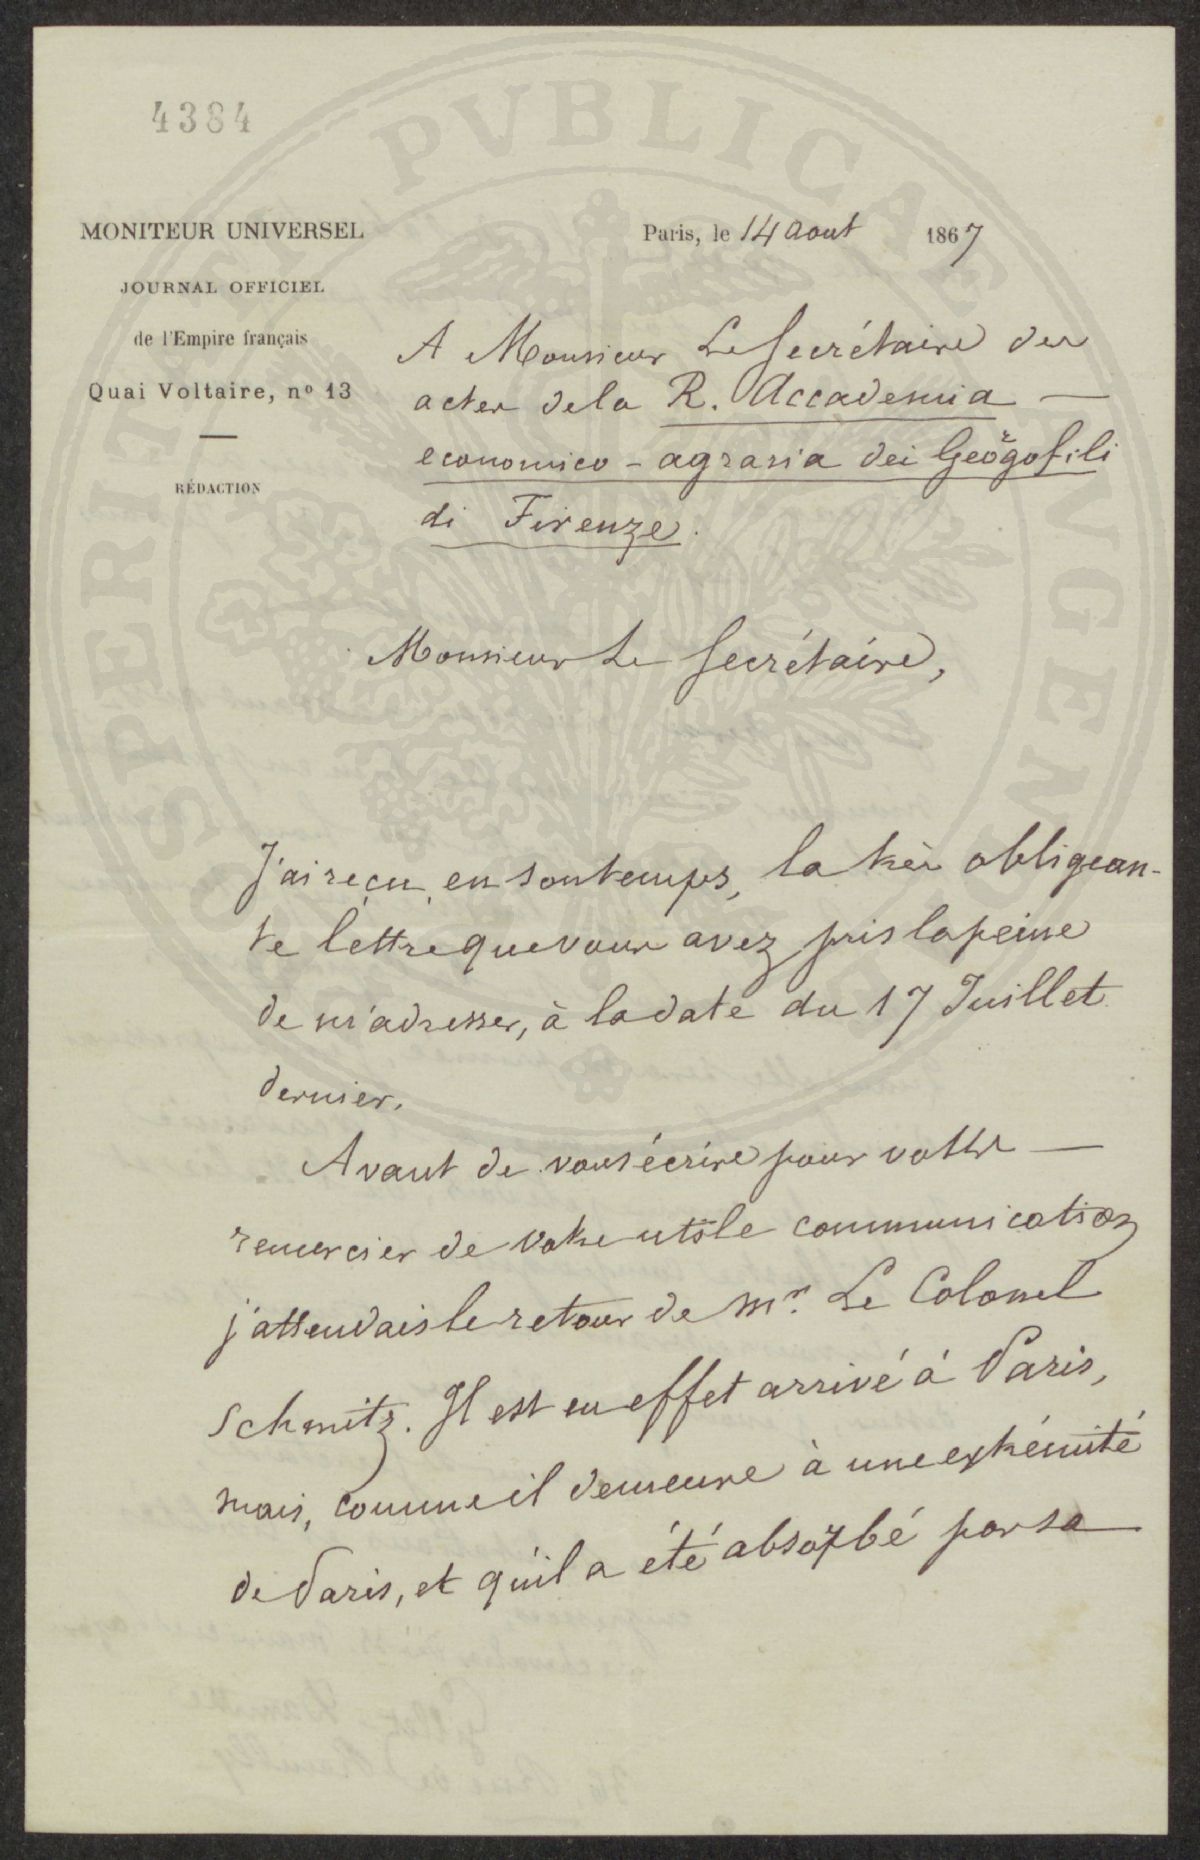 4384
MONITEUR UNIVERSEL
JOURNAL OFFICIEL
de l'Empire français
Quai Voltaire, nº 13
RÉDACTION
Paris, le 14 aout 1867
A Monsieur Le Secrétaire des
actes de la R. Accademia —
economico - agraria dei Georgofili
di Firenze.
Monsieur Le Secrétaire,
J'ai reçu, en son temps, la très obligean-
te lettre que vous avez pris la peine
de m'adresser, à la date du 17 Juillet
dernier.
Avant de vous écrire pour vottre —
remercier de votre utile communication
j'attendais le retour de Mr. Le Colonel
Schmitz. Il est en effet arrivé à Paris,
mais, comme il demeure à une extrémité
de Paris, et qu'il a été absorbé par sa
PROSPERITATI PVBLICAE AVGENDAE